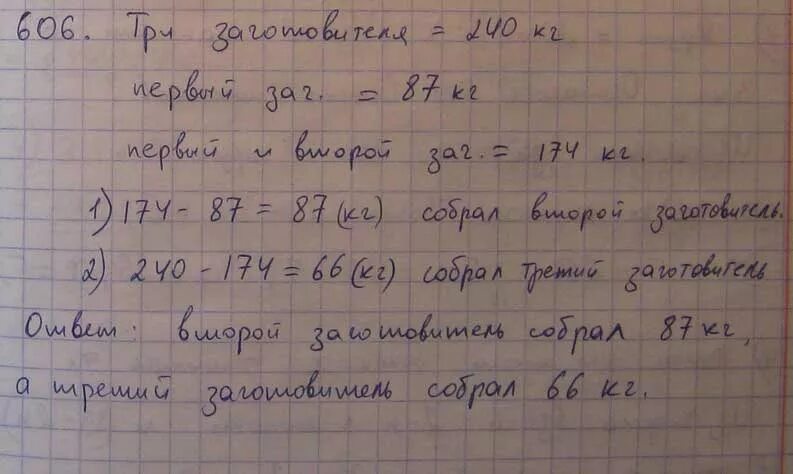 606. Три заготовителя = 240 кг
первый заг. = 87 кг
первый и второй заг. = 174 кг.
1) 174 - 87 = 87 (кг) собрал второй заготовитель.
2) 240 - 174 = 66 (кг) собрал третий заготовитель
Ответ: второй заготовитель собрал 87 кг,
а третий заготовитель собрал 66 кг.